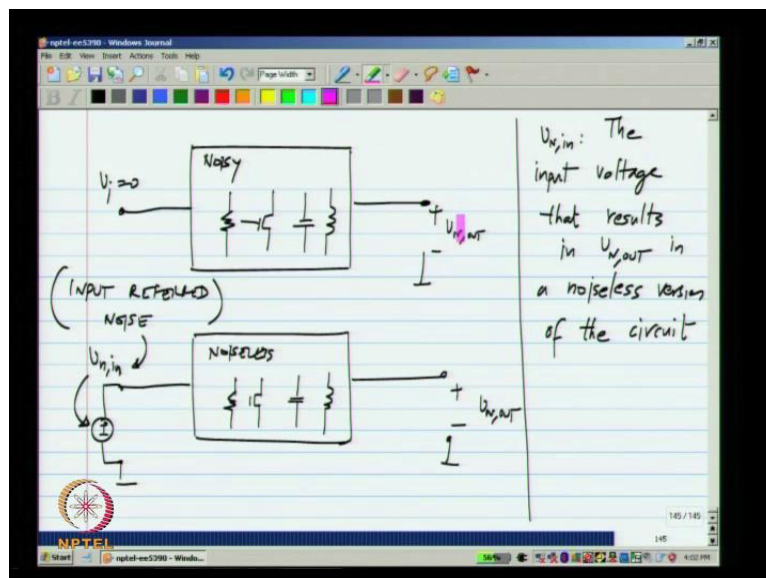 nptel-ee5390 - Windows Journal
File Edit View Insert Actions Tools Help
Page Width
B I
NOISY
Vi=0
+
VN,OUT
-
(INPUT REFERRED
NOISE)
Vn,in
NOISELESS
+
VN,OUT
-
VN,in: The
input voltage
that results
in VN,OUT in
a noiseless version
of the circuit
145 / 145
145
NPTEL
Start
nptel-ee5390 - Windo...
56%
4:02 PM